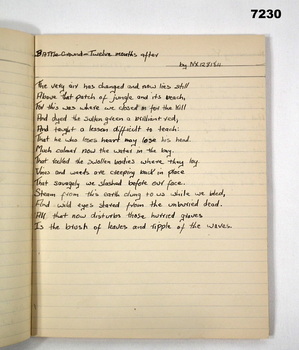 7230
Battle Ground - Twelve months after
by NX
The very air has changed and now lies still
Above that patch of jungle and its beach,
For this was where we closed in for the kill
And dyed the sullen green a brilliant red,
And taught a lesson difficult to teach:
That he who loses heart may lose his head.
Much calmer now the water in the bay.
That the swollen bodies where they lay.
Vines and weeds are creeping back in place
That savagely we slashed before our face.
Steam from this earth clung to us while we bled,
And wild eyes stared from the unburied dead.
All that now disturbs those hurried graves
Is the brush of leaves and ripple of the waves.